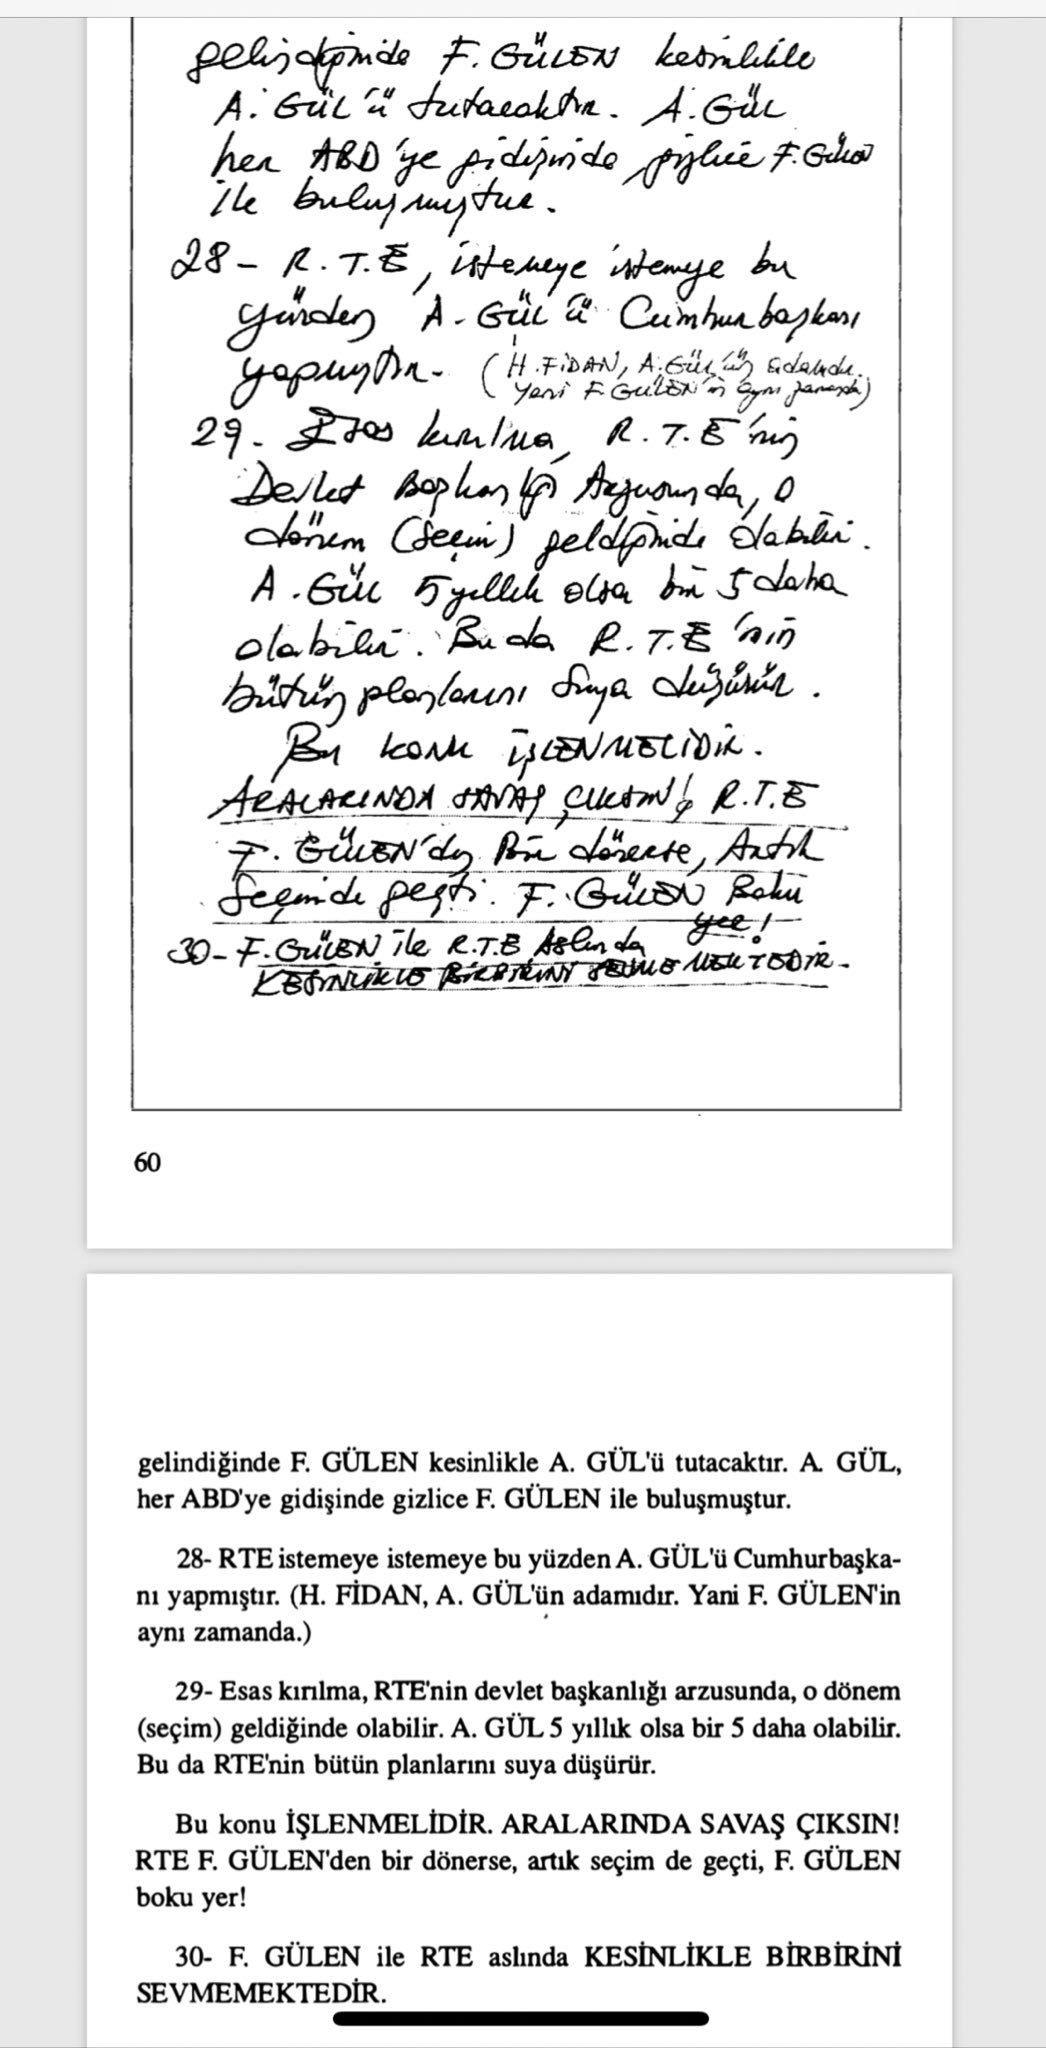 gelişdiğinide F. GÜLEN kesinlikle
A. GÜL'ü tutacaktır. A. GÜL
her ABD'ye gidişinde gizlice F. GÜLEN
ile buluşmuştur.
28- R.T.E, istemeye istemeye bu
yüzden A. GÜL'ü Cumhurbaşkanı
yapmıştır. (H. FİDAN, A. GÜL'ün adamıdır.
Yani F. GÜLEN'in aynı zamanda)
29. Esas kırılma, R.T.E'nin
Devlet Başkanlığı Arzusunda, o
dönem (seçim) geldiğinide olabilir.
A. GÜL 5 yıllık olsa bir 5 daha
olabilir. Bu da R.T.E'nin
bütün planlarını suya düşürür.
Bu konu İŞLENMELİDİR.
ARALARINDA SAVAŞ ÇIKSIN! R.T.E
F. GÜLEN'den Bir dönerse, Artık
Seçimde geçti. F. GÜLEN Boku
yer!
30- F. GÜLEN ile R.T.E Aslında
KESİNLİKLE BİRBİRİNİ SEVMEMEKTEDİR.
60
gelindiğinde F. GÜLEN kesinlikle A. GÜL'ü tutacaktır. A. GÜL,
her ABD'ye gidişinde gizlice F. GÜLEN ile buluşmuştur.
28- RTE istemeye istemeye bu yüzden A. GÜL'ü Cumhurbaşka-
nı yapmıştır. (H. FİDAN, A. GÜL'ün adamıdır. Yani F. GÜLEN'in
aynı zamanda.)
29- Esas kırılma, RTE'nin devlet başkanlığı arzusunda, o dönem
(seçim) geldiğinde olabilir. A. GÜL 5 yıllık olsa bir 5 daha olabilir.
Bu da RTE'nin bütün planlarını suya düşürür.
Bu konu İŞLENMELİDİR. ARALARINDA SAVAŞ ÇIKSIN!
RTE F. GÜLEN'den bir dönerse, artık seçim de geçti, F. GÜLEN
boku yer!
30- F. GÜLEN ile RTE aslında KESİNLİKLE BİRBİRİNİ
SEVMEMEKTEDİR.